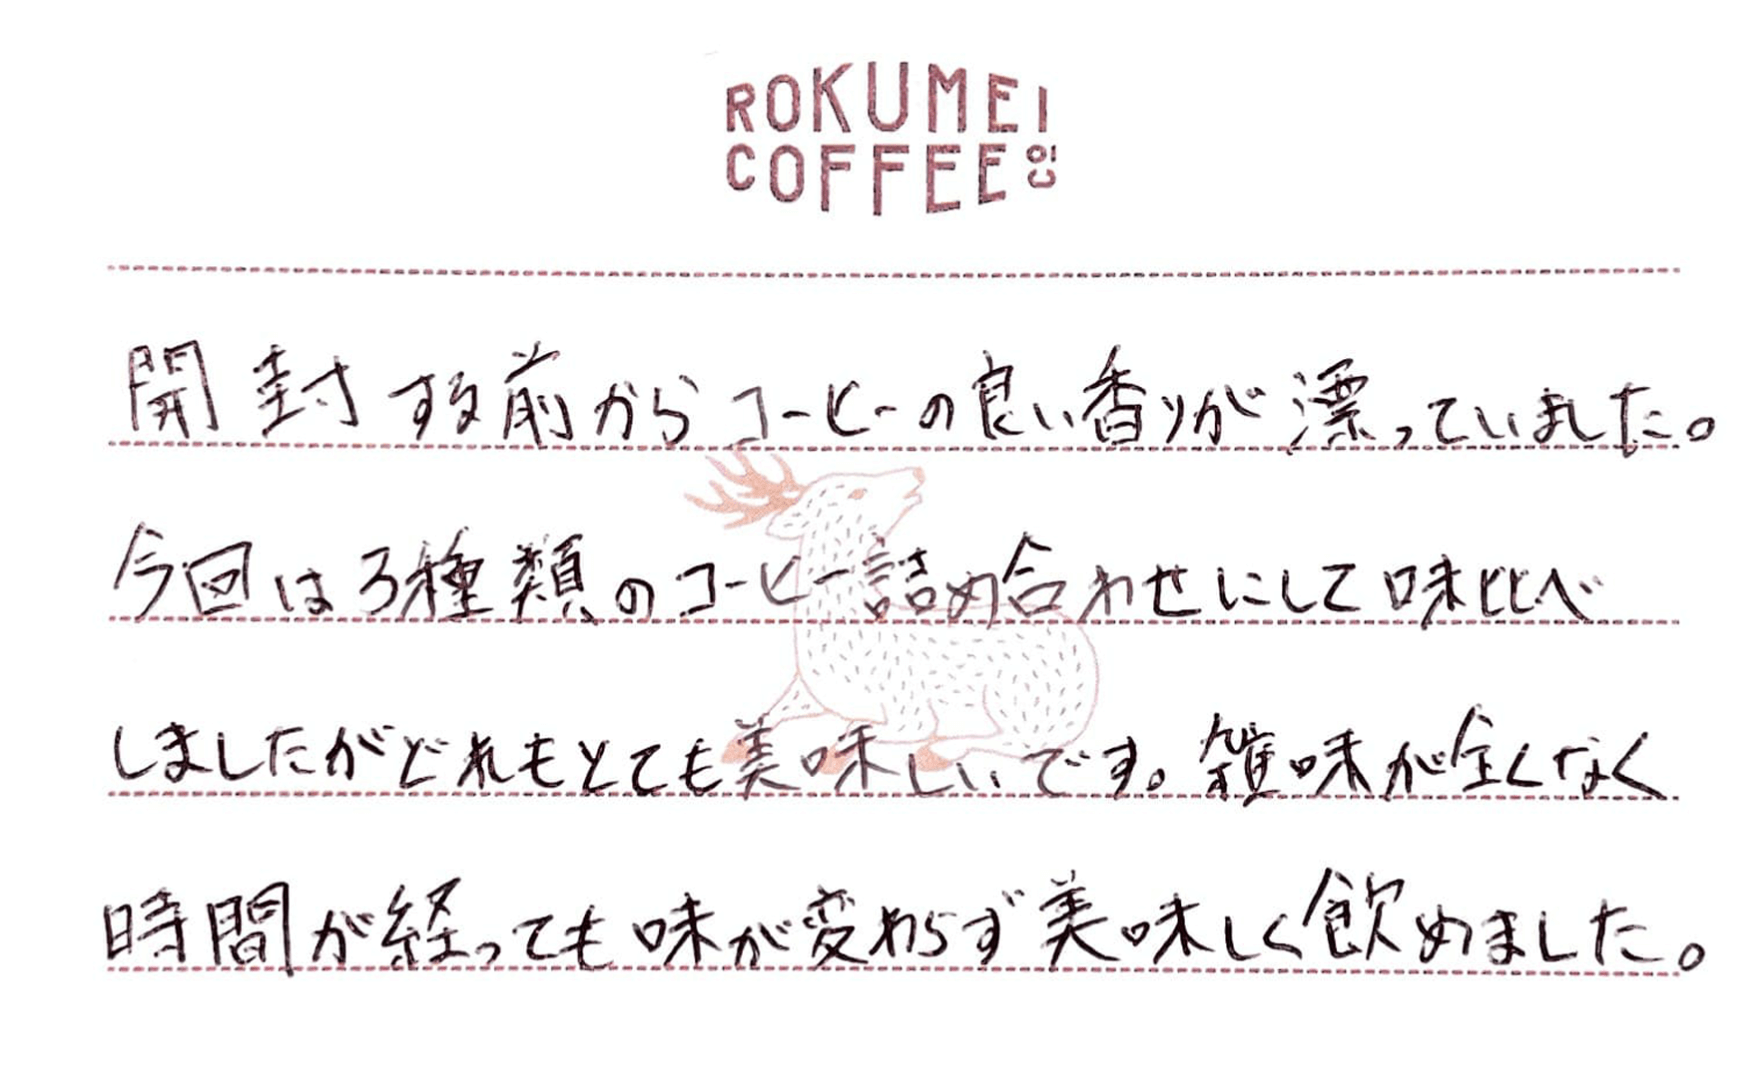 ROKUMEI
COFFEE CO.
開封する前からコーヒーの良い香りが漂っていました。
今回は3種類のコーヒー詰め合わせにして味比べ
しましたがどれもとても美味しいです。雑味が全くなく
時間が経っても味が変わらず美味しく飲めました。